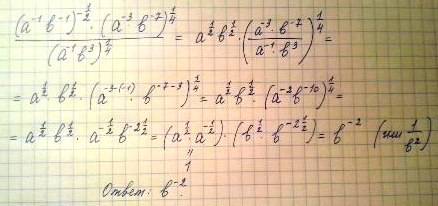 \frac{(a^{-1} b^{-1})^{-\frac{1}{2}} \cdot (a^{-3} b^{-7})^{\frac{1}{4}}}{(a^{-1} b^{3})^{\frac{1}{4}}} = a^{\frac{1}{2}} b^{\frac{1}{2}} \cdot \left(\frac{a^{-3} \cdot b^{-7}}{a^{-1} \cdot b^{3}}\right)^{\frac{1}{4}} =
= a^{\frac{1}{2}} \cdot b^{\frac{1}{2}} \cdot (a^{-3-(-1)} \cdot b^{-7-3})^{\frac{1}{4}} = a^{\frac{1}{2}} b^{\frac{1}{2}} \cdot (a^{-2} b^{-10})^{\frac{1}{4}} =
= a^{\frac{1}{2}} b^{\frac{1}{2}} \cdot a^{-\frac{1}{2}} b^{-2\frac{1}{2}} = (a^{\frac{1}{2}} a^{-\frac{1}{2}}) \cdot (b^{\frac{1}{2}} \cdot b^{-2\frac{1}{2}}) = b^{-2} (или \frac{1}{b^2})
"
1
Ответ: b^{-2}.